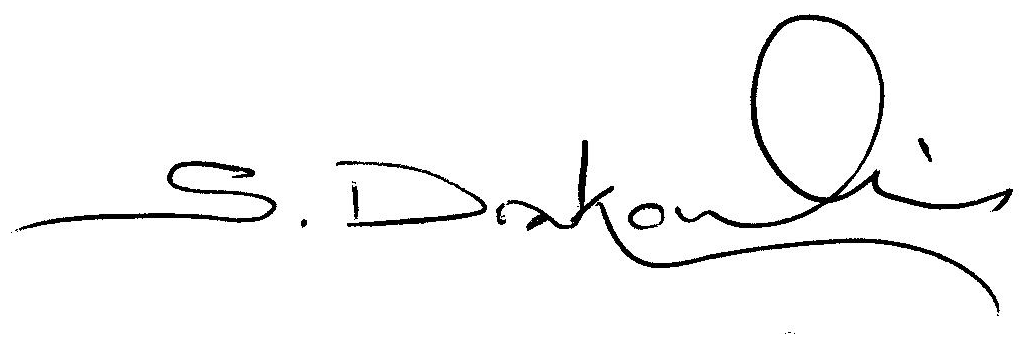 S. Drakoulis